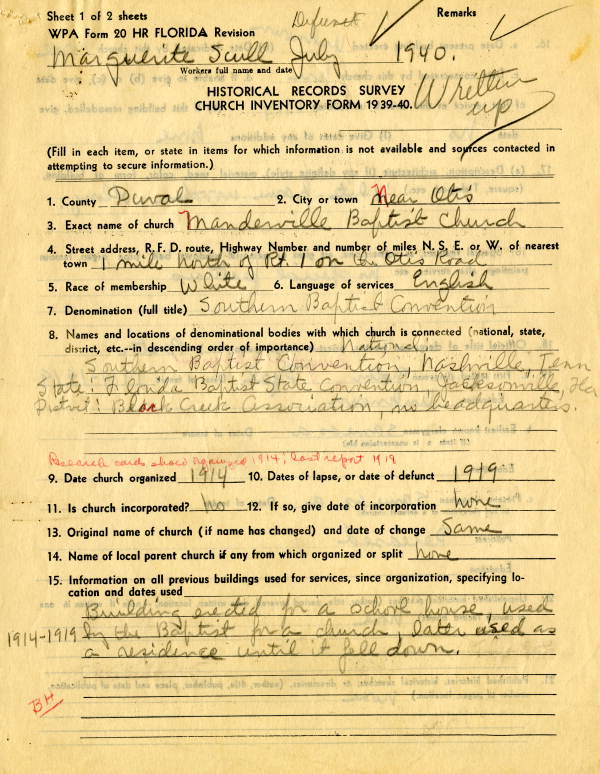 Sheet 1 of 2 sheets
Defunct
Remarks
WPA Form 20 HR FLORIDA Revision
Marguerite Scull July 1940.
Workers full name and date
HISTORICAL RECORDS SURVEY
CHURCH INVENTORY FORM 1939-40.
Written
up
(Fill in each item, or state in items for which information is not available and sources contacted in
attempting to secure information.)
1. County Duval 2. City or town Near Otis
3. Exact name of church Manderville Baptist Church
4. Street address, R. F. D. route, Highway Number and number of miles N. S. E. or W. of nearest
town 1 mile North of Rt. 1 on the Otis Road
5. Race of membership White 6. Language of services English
7. Denomination (full title) Southern Baptist Convention
8. Names and locations of denominational bodies with which church is connected (national, state,
district, etc.--in descending order of importance) National
Southern Baptist Convention, Nashville, Tenn
State: Florida Baptist State Convention, Jacksonville, Fla
District: Black Creek Association, no headquarters.
Research cards show organized 1914; last report 1919
9. Date church organized 1914 10. Dates of lapse, or date of defunct 1919
11. Is church incorporated? No 12. If so, give date of incorporation none
13. Original name of church (if name has changed) and date of change Same
14. Name of local parent church if any from which organized or split none
15. Information on all previous buildings used for services, since organization, specifying lo-
cation and dates used
Building erected for a school house, used
1914-1919 by the Baptist for a church, later used as
a residence until it fell down.
BH